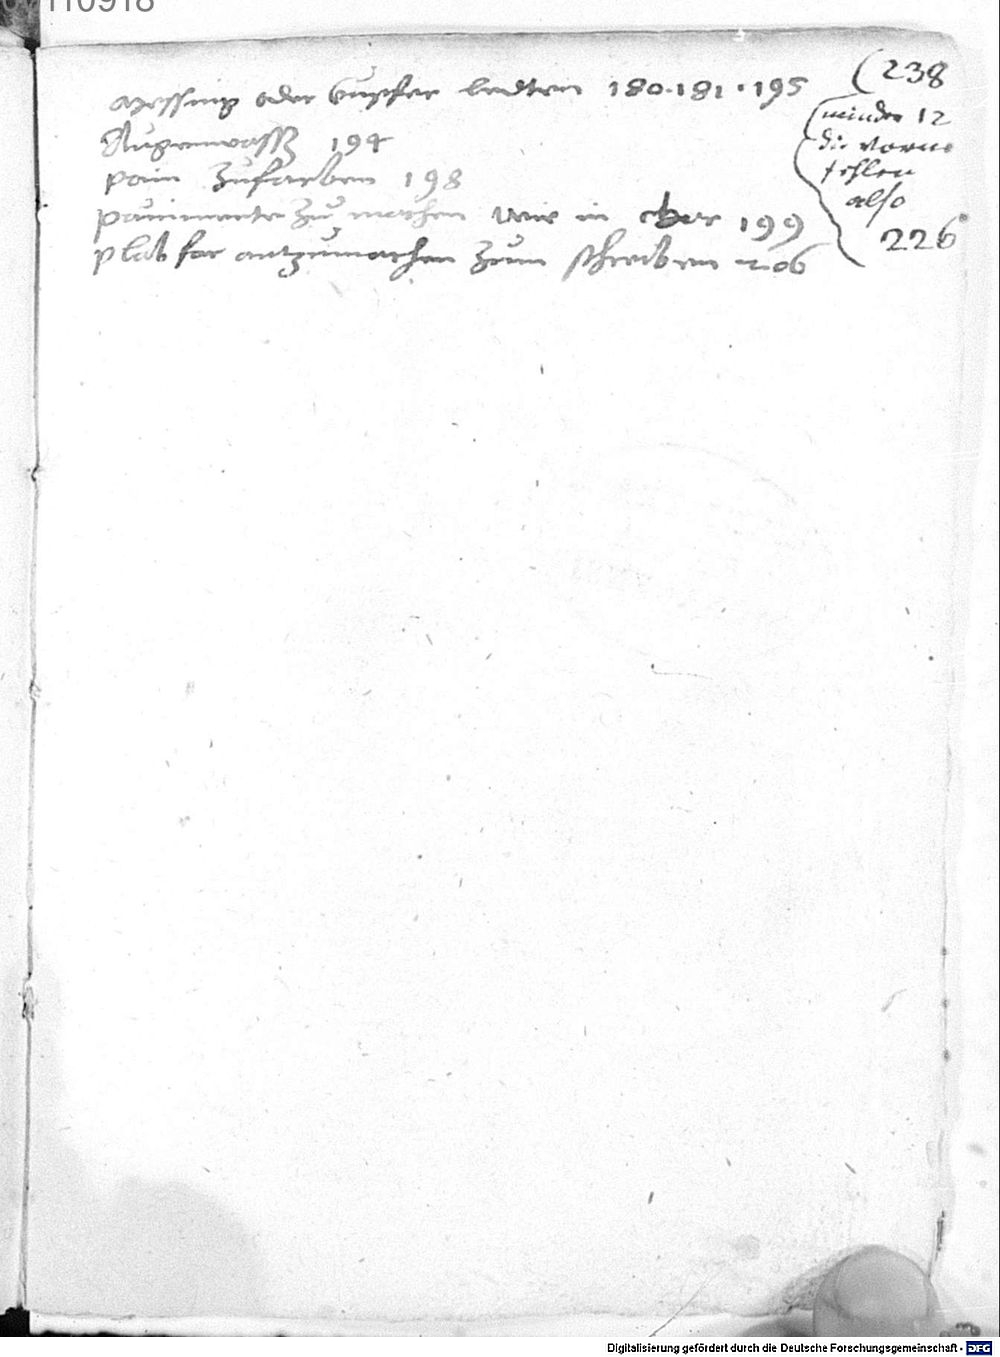 110918
messing oder kupfer 180 · 181 · 195
Augenwasser 194
pain zufarben 198
zu machen wie in 199
plab far antzumachen zum schreiben 206
238
minder 12
die vorne
fehlen
also
226
Digitalisierung gefördert durch die Deutsche Forschungsgemeinschaft - DFG